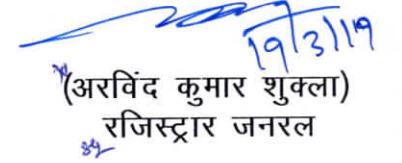 19/3/19
(अरविंद कुमार शुक्ला)
रजिस्ट्रार जनरल